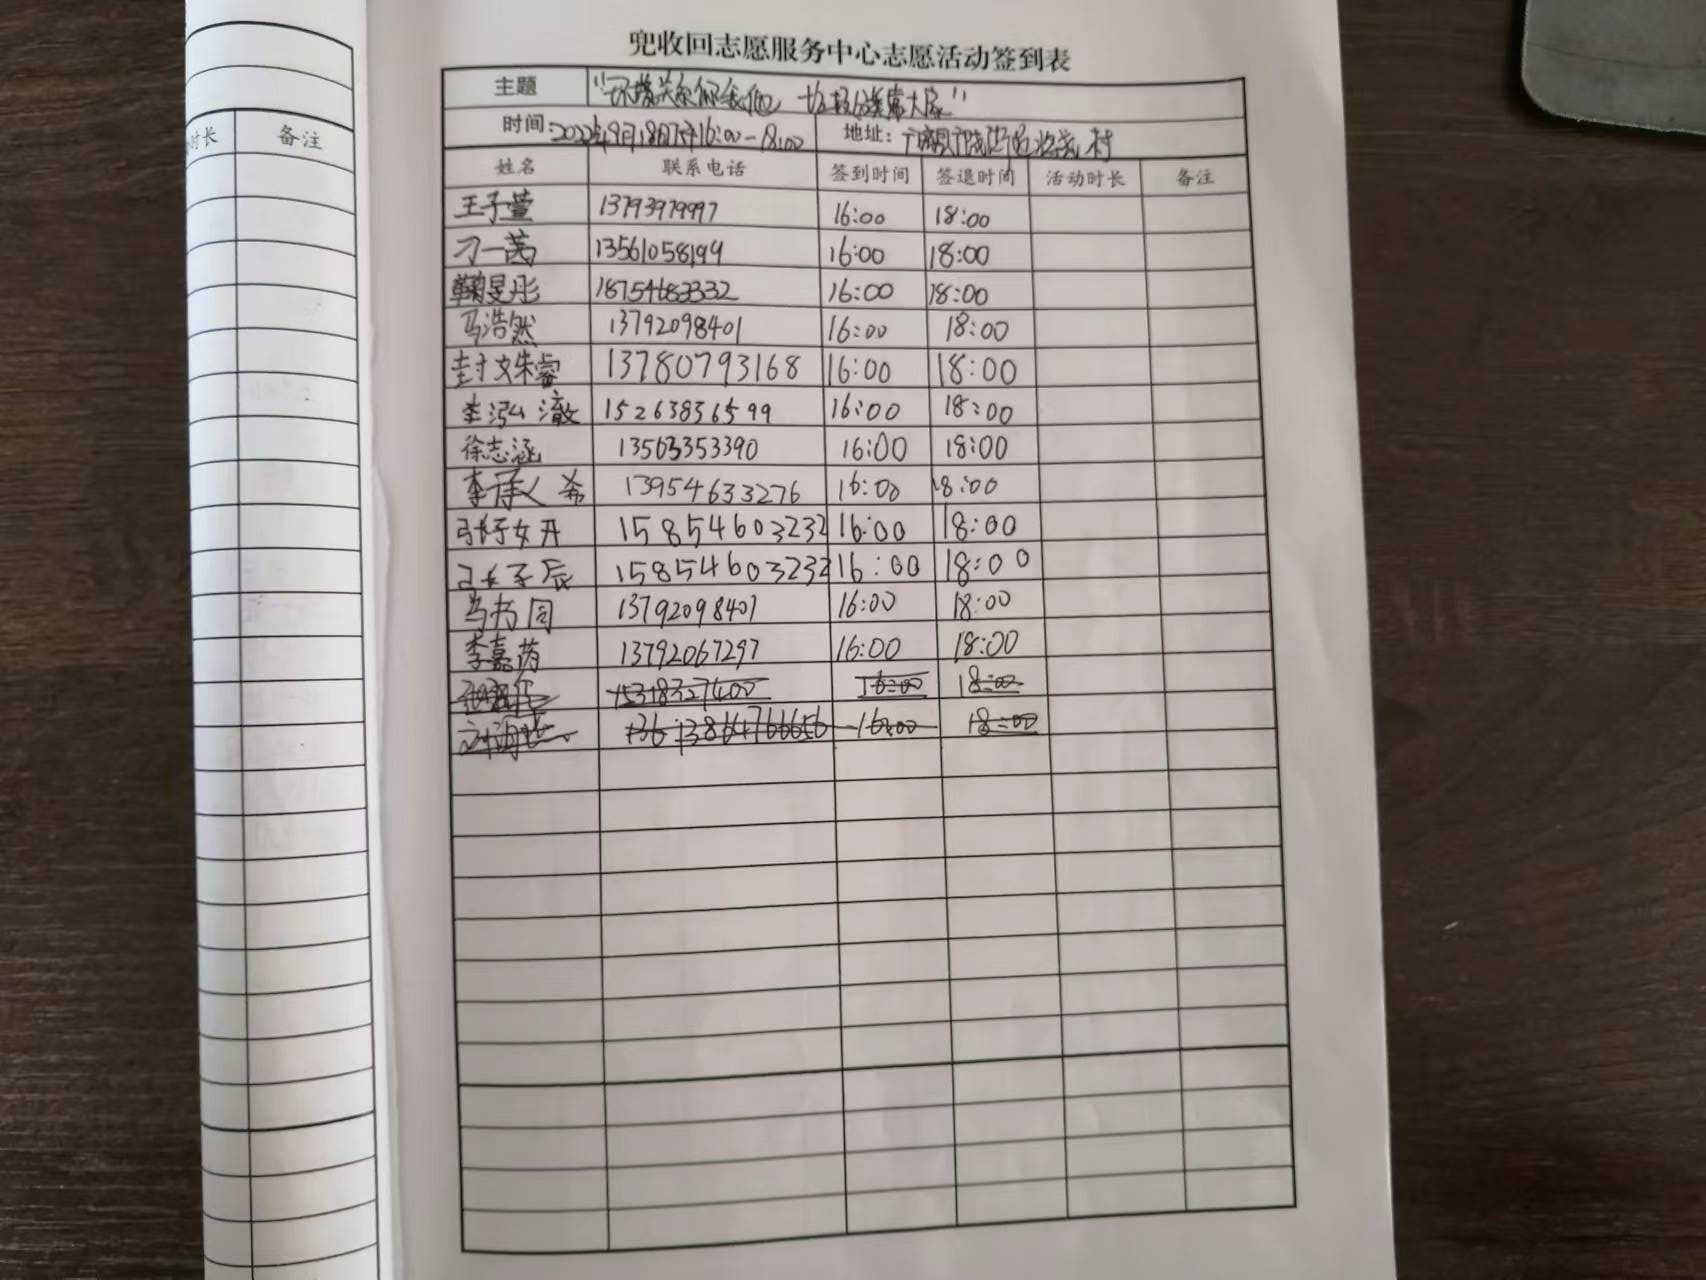 时长 备注
兜收回志愿服务中心志愿活动签到表
主题 "环境关系你我他 垃圾分类靠大家"
时间:2022年9月18日下午16:00-18:00 地址: 村
姓名 联系电话 签到时间 签退时间 活动时长 备注
王子萱 13793979997 16:00 18:00
刁一茜 13561058199 16:00 18:00
鞠旻彤 18754683332 16:00 18:00
马浩然 13792098401 16:00 18:00
封文朱睿 13780793168 16:00 18:00
李泓澈 15263836599 16:00 18:00
徐志涵 13563353390 16:00 18:00
李承希 13954633276 16:00 18:00
张妤妍 15854603232 16:00 18:00
张子辰 15854603232 16:00 18:00
马书同 13792098401 16:00 18:00
李嘉芮 13792067297 16:00 18:00
15318327400 16:00 18:00
136 13864766656 16:00 18:00